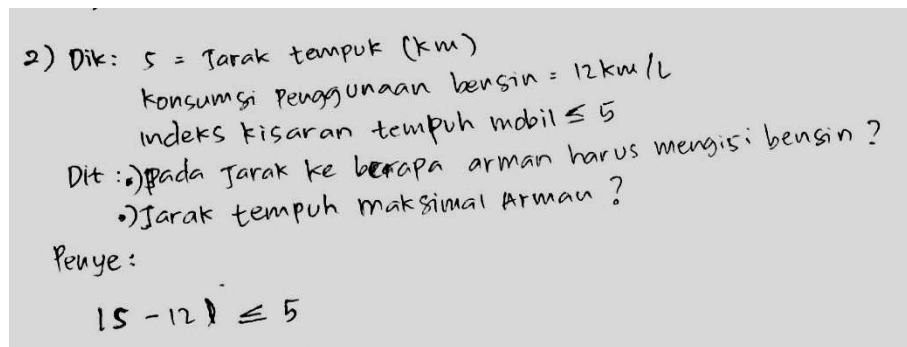 2) Dik: s = Jarak tempuk (km)
konsumsi penggunaan bensin = 12 km/L
indeks kisaran tempuh mobil ≤ 5
Dit : •) pada Jarak ke berapa arman harus mengisi bensin ?
•) Jarak tempuh maksimal Arman ?
Penye :
|s - 12| ≤ 5